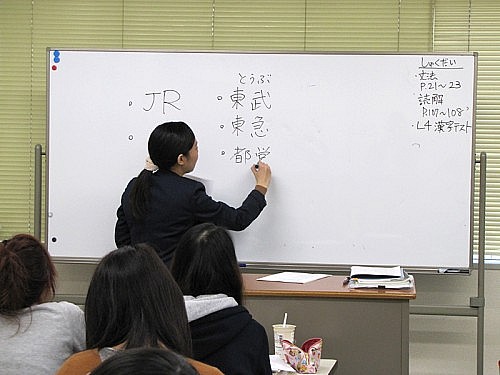 ・JR
・
とうぶ
・東武
・東急
・都営
しゅくだい
・文法
P.21〜23
・読解
P.107〜108
・L4 漢字テスト